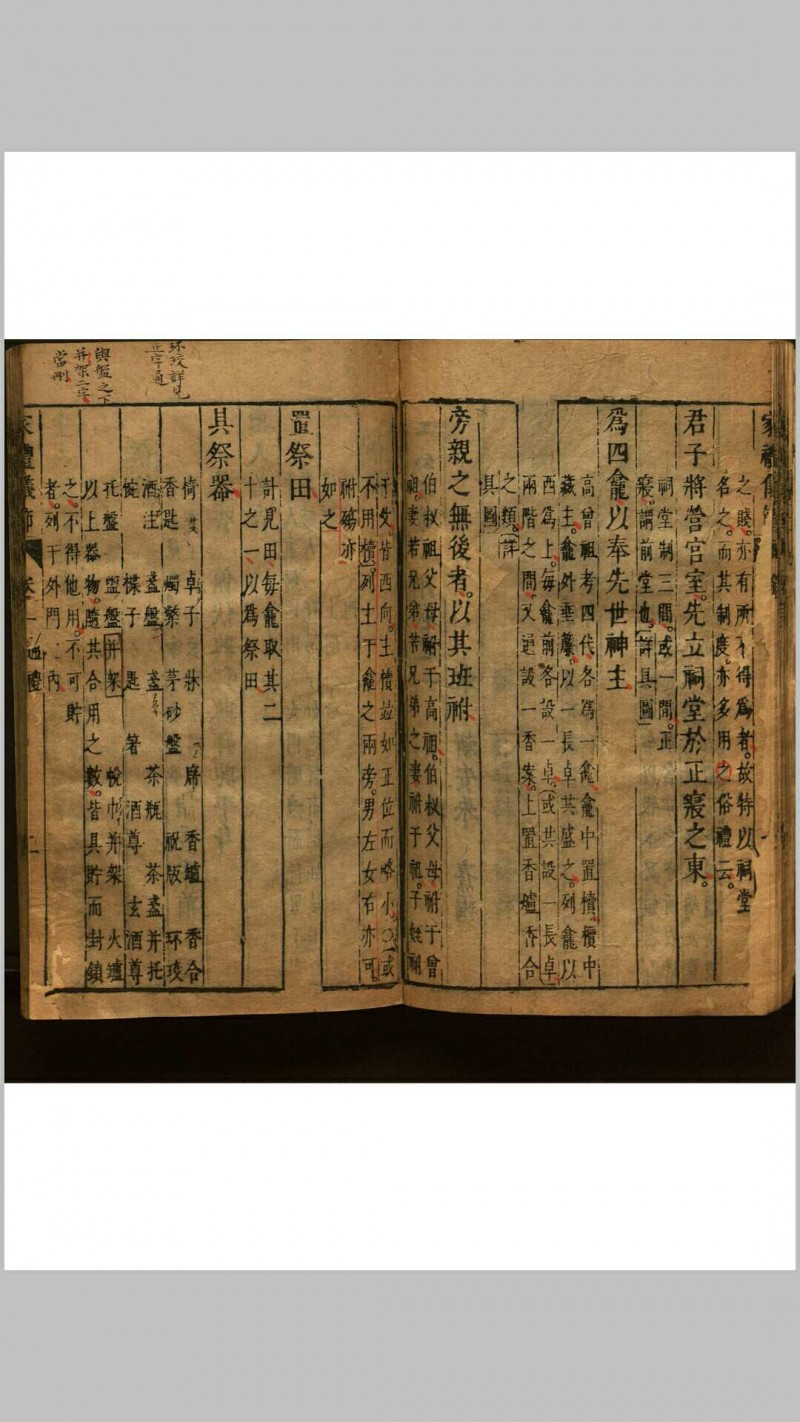 之賤亦有所不得爲者故特以祠堂
名之而其制度亦多用之俗禮云
君子將營宮室先立祠堂於正寢之東
祠堂制三間或一間正
寢謂前堂也詳具圖
爲四龕以奉先世神主
高曾祖考四代各爲一龕龕中置櫝櫝中
藏主龕外垂簾以一長卓共盛之列龕以
西爲上每龕前各設一卓或共設一長卓
兩階之間又通設一香案上置香爐香合
之類詳
具圖
旁親之無後者以其班祔
伯叔祖父母祔于高祖伯叔父母祔于曾
祖妻若兄弟若兄弟之妻祔于祖子姪祔
于父皆西向主櫝並如正位而略小或
不用櫝列主于龕之兩旁男左女右亦可
祔殤亦
如之
置祭田
計見田每龕取其二
十之一以爲祭田
具祭器
倚 卓子 牀 席 香爐 香合
香匙 燭檠 茅砂盤 祝版 环珓
酒注 盞盤 盞 茶瓶 茶盞并托
椀 楪子 匙 箸 酒尊 玄酒尊
托盤 盥盤并架 帨巾并架 火爐
以上器物隨其合用之數皆具貯而封鎖
之不得他用不可貯
者列于外門之內
家禮儀節 卷一 通禮 二
环珓詳見
正字通
與盤之下
并架二字
當刪